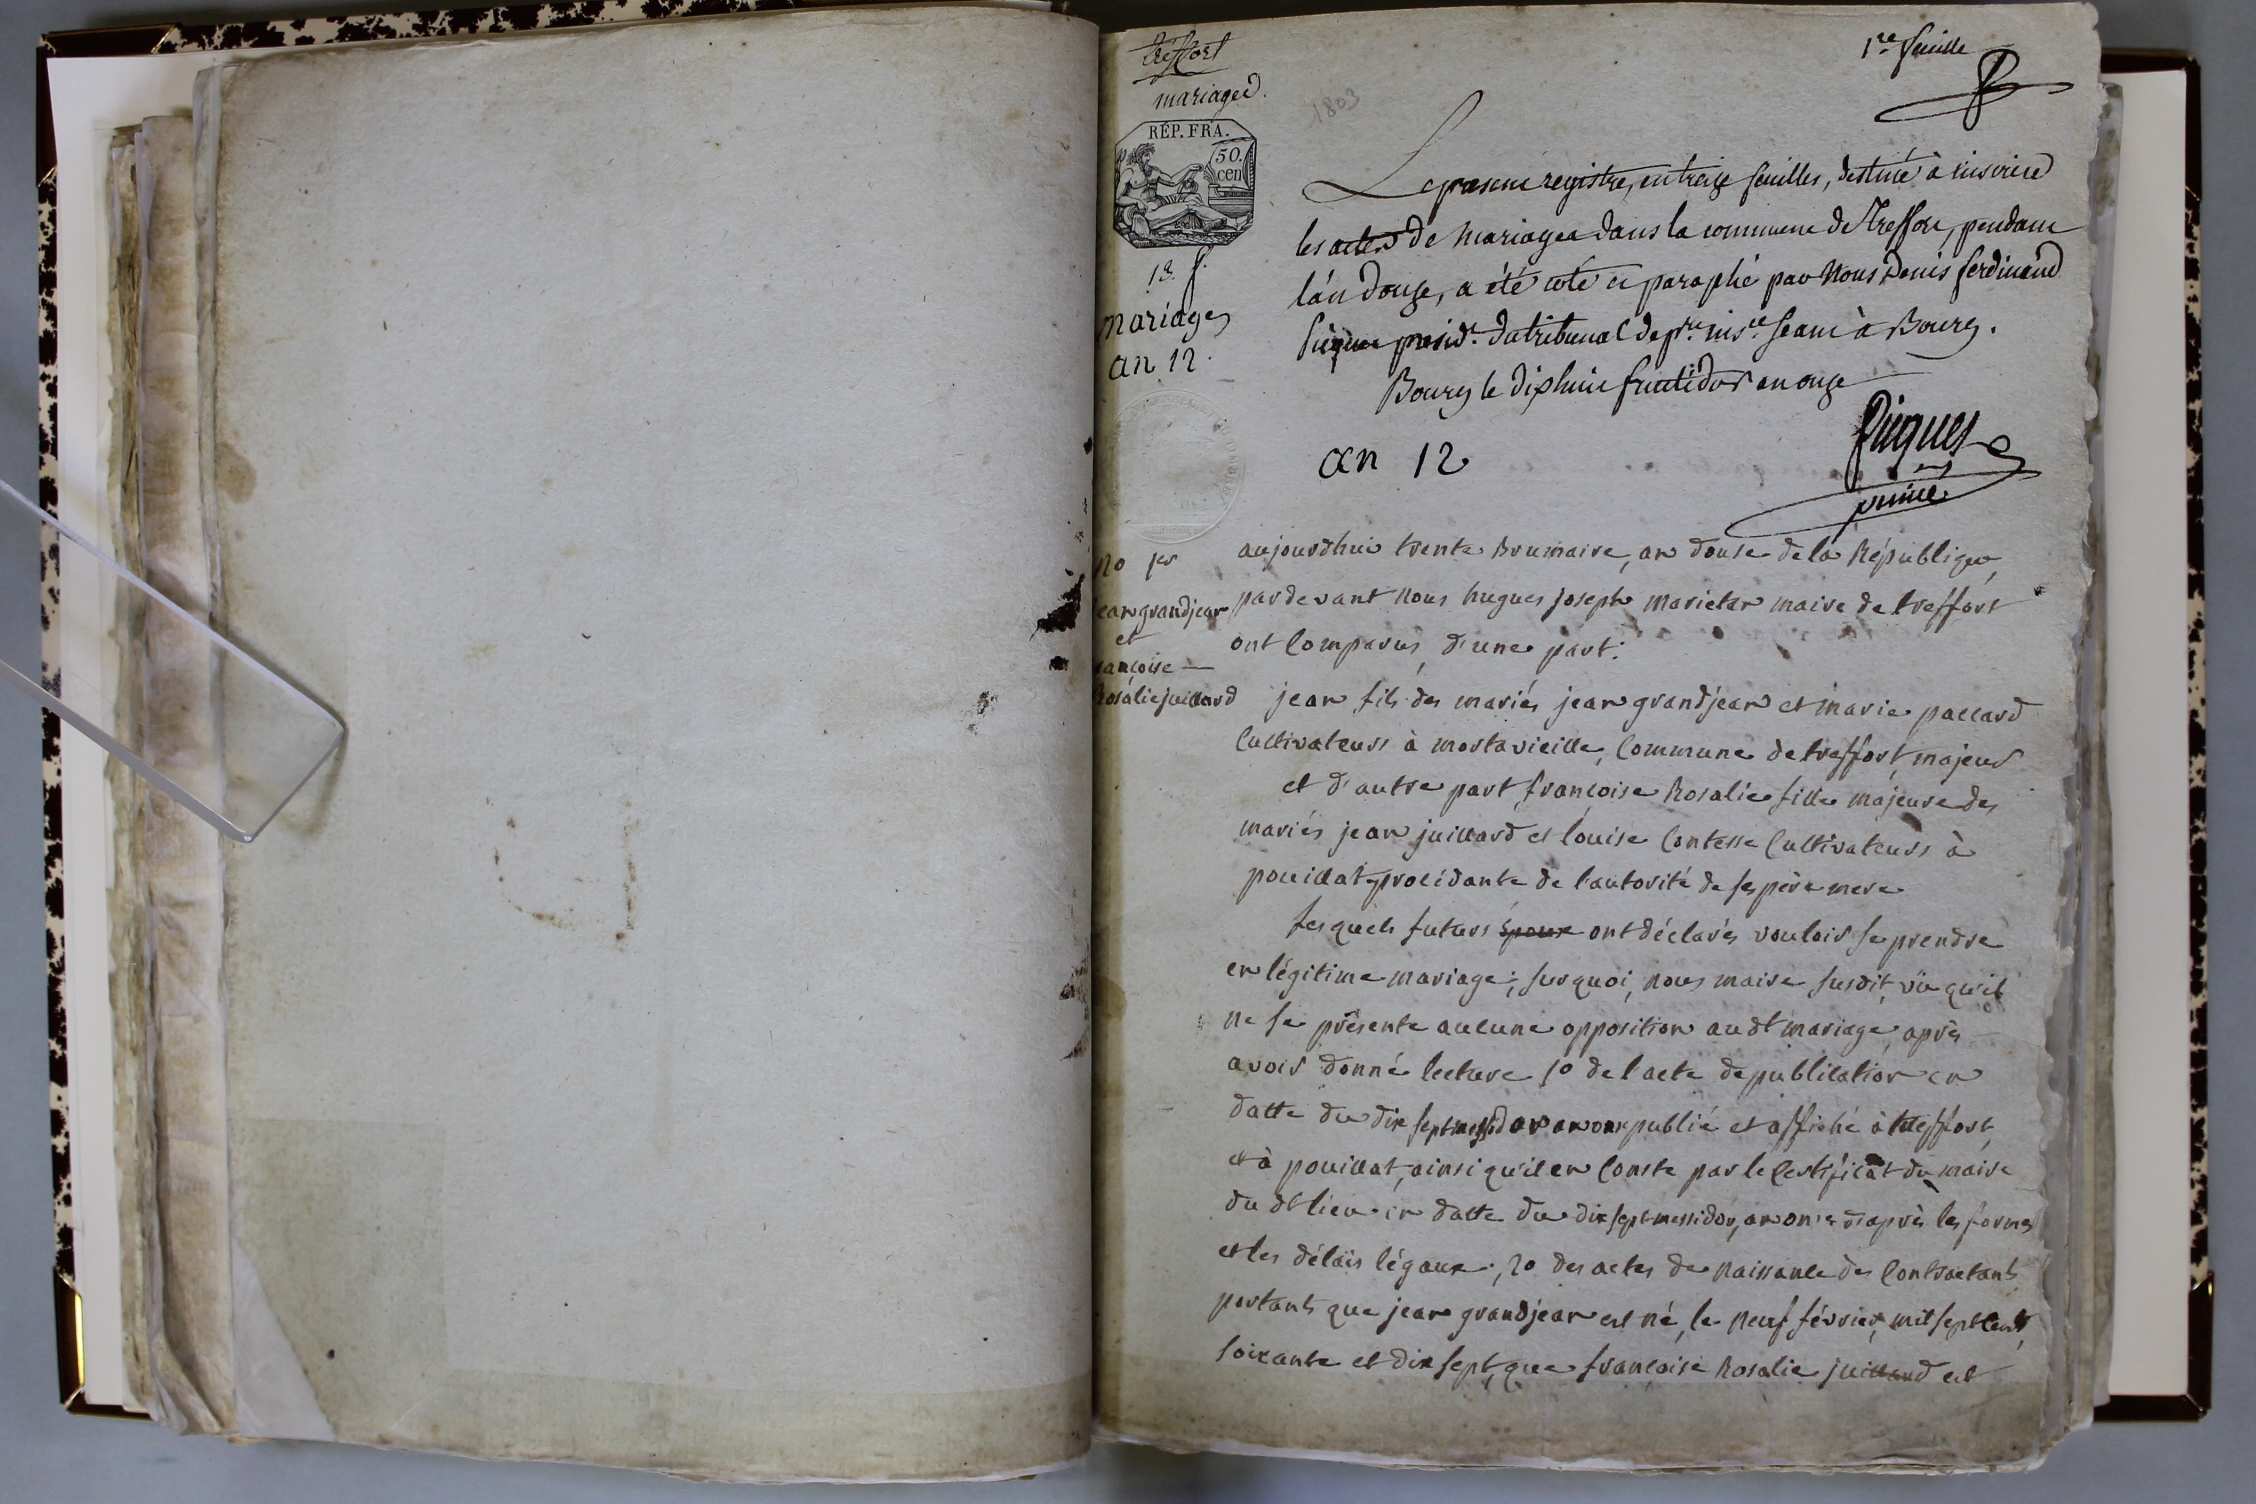 treffort
mariages.
RÉP. FRA.
50.
cen
13. f.
mariages
an 12.
1803
1re feuille
Le présent registre, en treize feuilles, destiné à inscrire
les actes de mariages dans la commune de Treffort, pendant
l'an douze, a été coté et paraphé par Nous Denis ferdinand
présidt. du tribunal de pre. insce. séant à Bourg.
Bourg le dixhuit fructidor an onze
an 12
No 1er
jean grandjean
et
francoise
Rosalie juillard
aujourdhui trente Brumaire, an douse de la République,
pardevant nous hugues joseph marietan maire de treffort
ont Comparus, d'une part.
jean fils des mariés jean grandjean et marie paccard
Cultivateurs à mortavieille, Commune de treffort, majeur
et d'autre part francoise Rosalie fille majeure des
mariés jean juillard et louise Contesse Cultivateurs à
pouillat, procédante de l'autorité de ses père mere
Lesquels futurs époux ont déclarés vouloir se prendre
en légitime mariage; sur quoi, nous maire susdit, vu qu'il
ne se présente aucune opposition audt mariage, après
avoir donné lecture 1o de l'acte de publication en
datte du dix sept messidor an onze publié et affiché à treffort
et à pouillat, ainsi qu'il en Conste par le Certificat du maire
du dt lieu en datte du dix sept messidor, an onze d'après les formes
et les délais légaux; 2o des actes de naissance des Contractants
portants que jean grandjean est né, le neuf février, mil sept cent,
soixante et dix sept, que francoise Rosalie juillard est